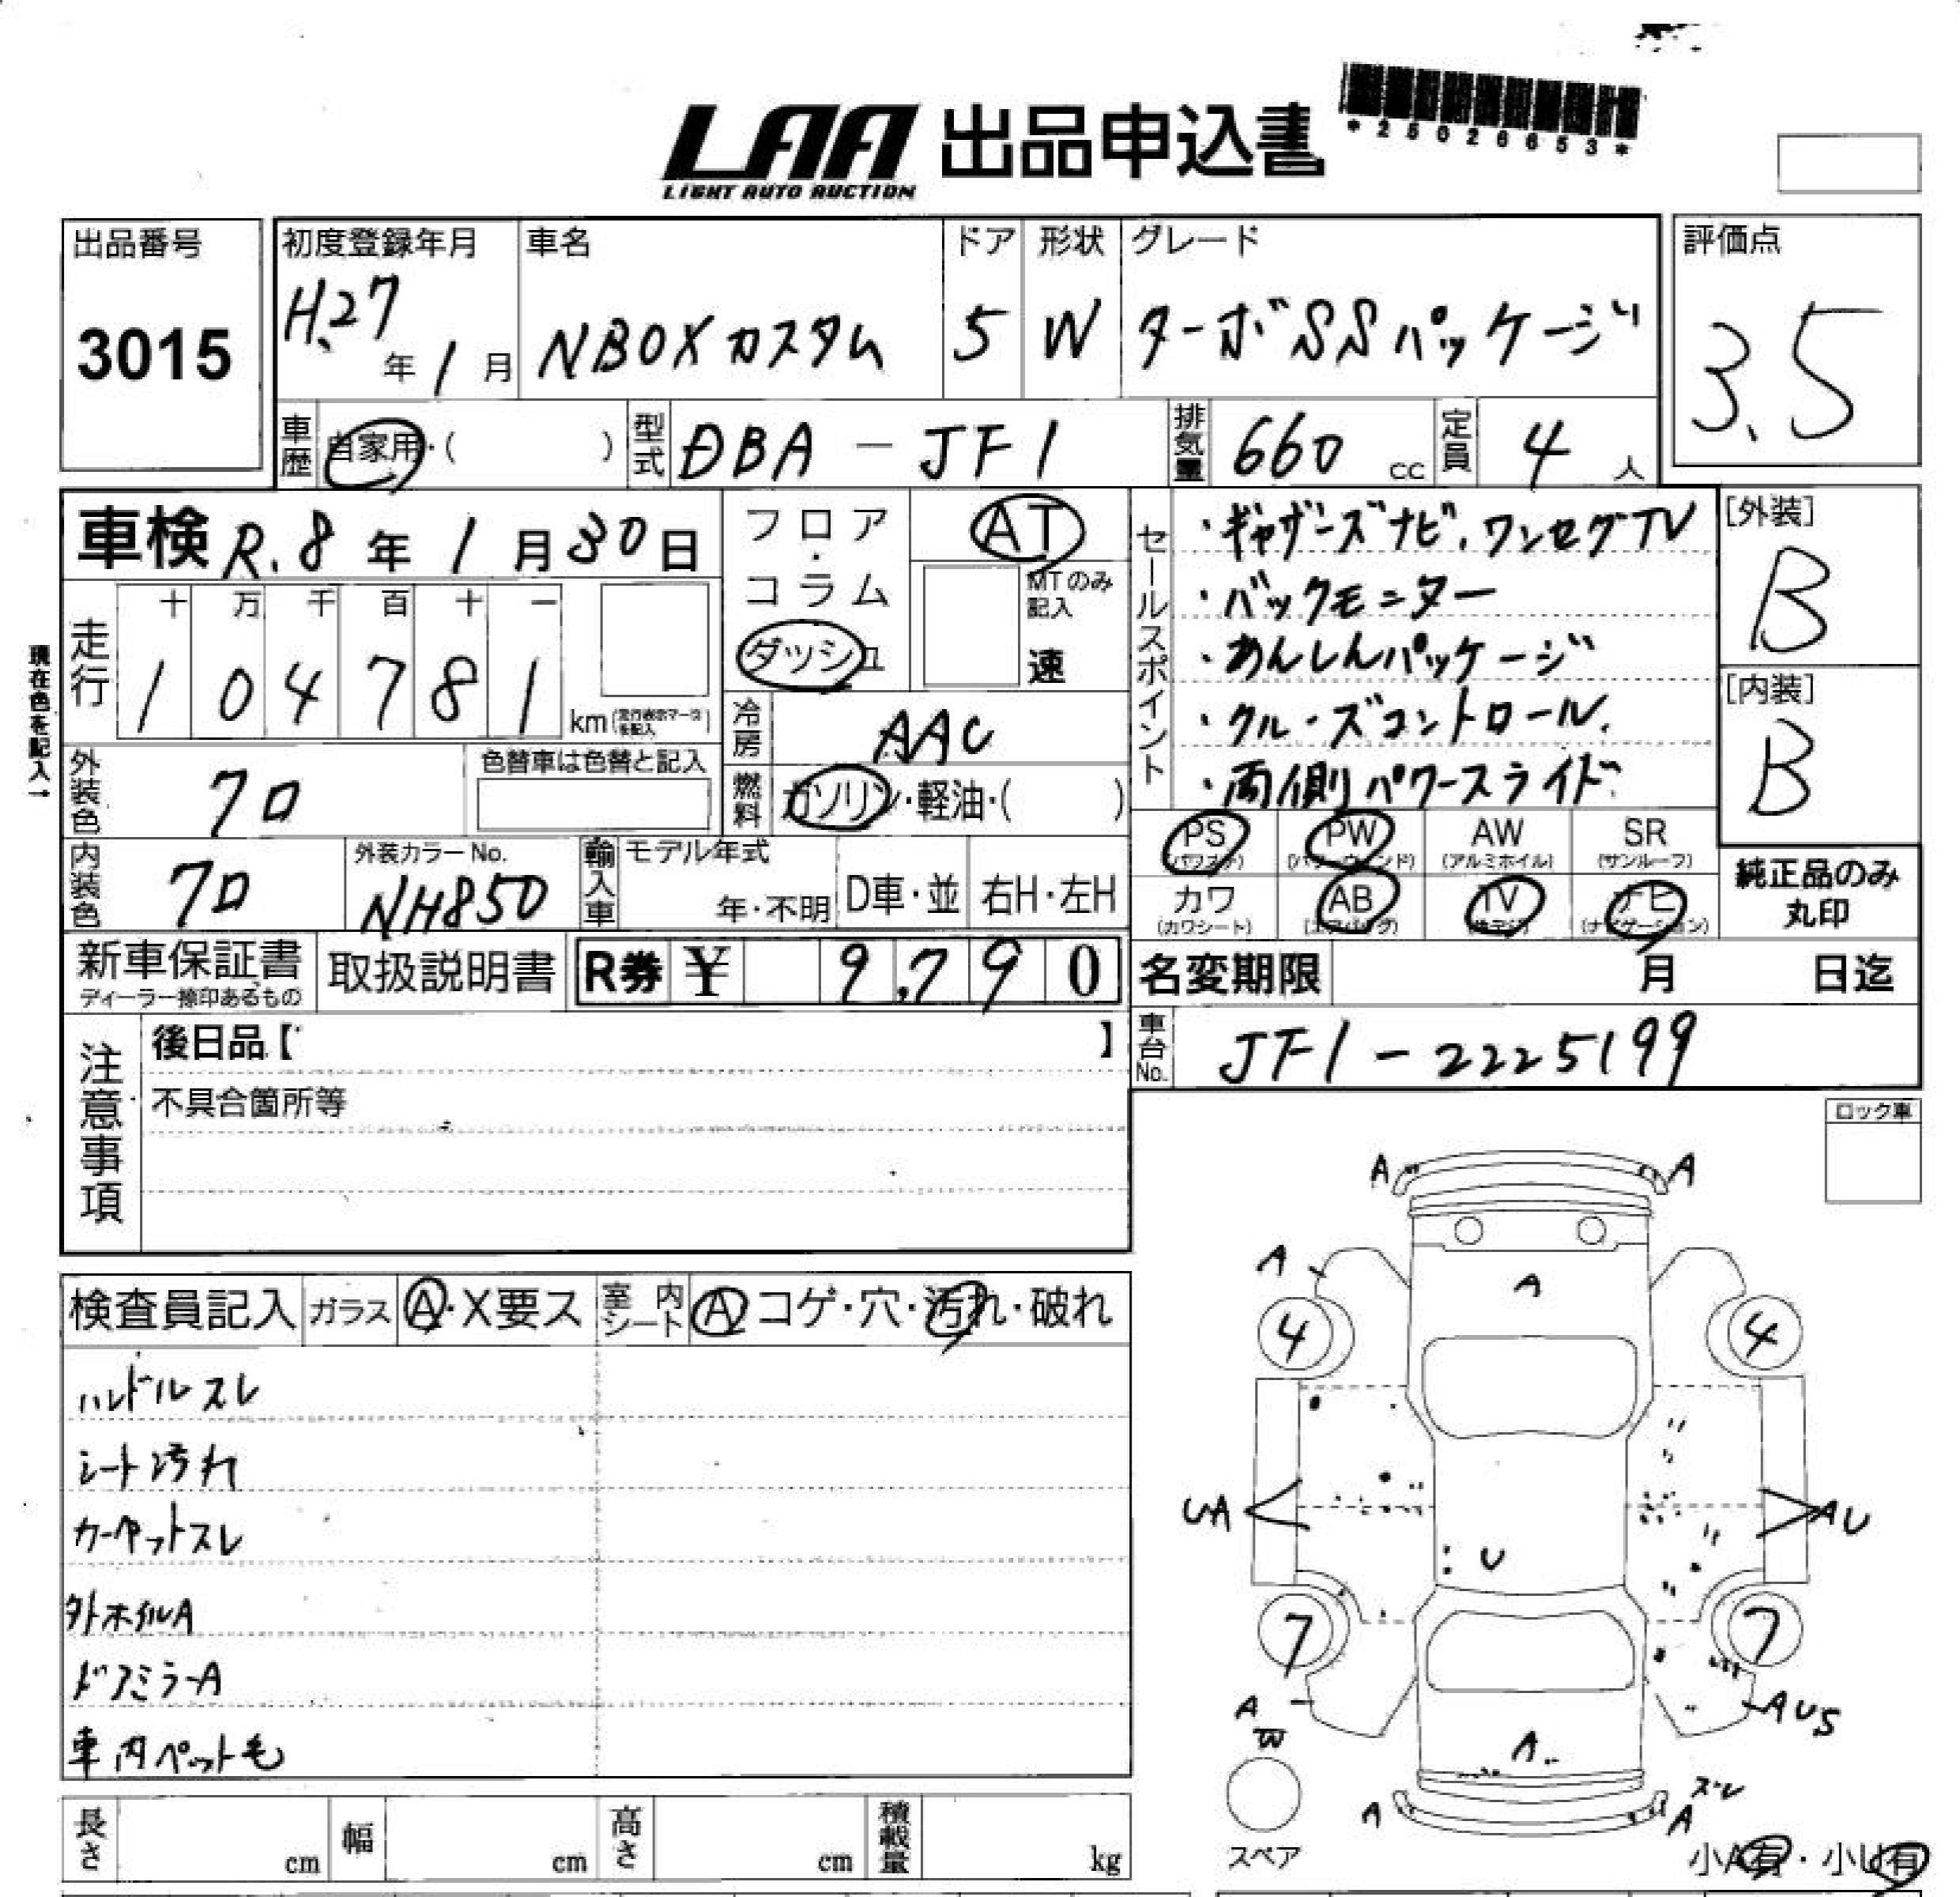 LAA 出品申込書
LIGHT AUTO AUCTION
*25026653*
出品番号
3015
初度登録年月
H.27年1月
車名
NBOXカスタム
ドア
5
形状
W
グレード
ターボSSパッケージ
評価点
3.5
車歴 自家用・( )
型式 DBA-JF1
排気量 660 cc
定員 4人
車検 R.8年1月30日
走行
十 万 千 百 十 一
1 0 4 7 8 1 km(走行表示マークを記入)
現在色を記入→
外装色 クロ
色替車は色替と記入
内装色 クロ
外装カラーNo.
NH850
フロア・コラム
ダッシュ
AT
MTのみ記入
速
冷房 AAC
燃料 ガソリン・軽油・( )
輸入車 モデル年式
年・不明
D車・並
右H・左H
セールスポイント
・ギャザーズナビ、ワンセグTV
・バックモニター
・あんしんパッケージ
・クルーズコントロール.
・両側パワースライド
[外装]
B
[内装]
B
PS (パワステ)
PW (パワーウィンド)
AW (アルミホイル)
SR (サンルーフ)
カワ (カワシート)
AB (エアバッグ)
TV
ナビ (ナビゲーション)
純正品のみ
丸印
新車保証書
ディーラー捺印あるもの
取扱説明書
R券 ¥ 9,790
名変期限 月 日迄
車台No. JF1-2225199
注意事項
後日品【 】
不具合箇所等
ロック車
検査員記入
ガラス A・X要ス
室内シート A コゲ・穴・汚れ・破れ
ハンドルスレ
シート汚れ
カーペットスレ
外ホイルA
ドアミラーA
車内ペット毛
A A
A
A
4 4
UA AU
U
7 7
A AUS
W
A
ズレ
A A
スペア
小A有・小U有
長さ cm
幅 cm
高さ cm
積載量 kg